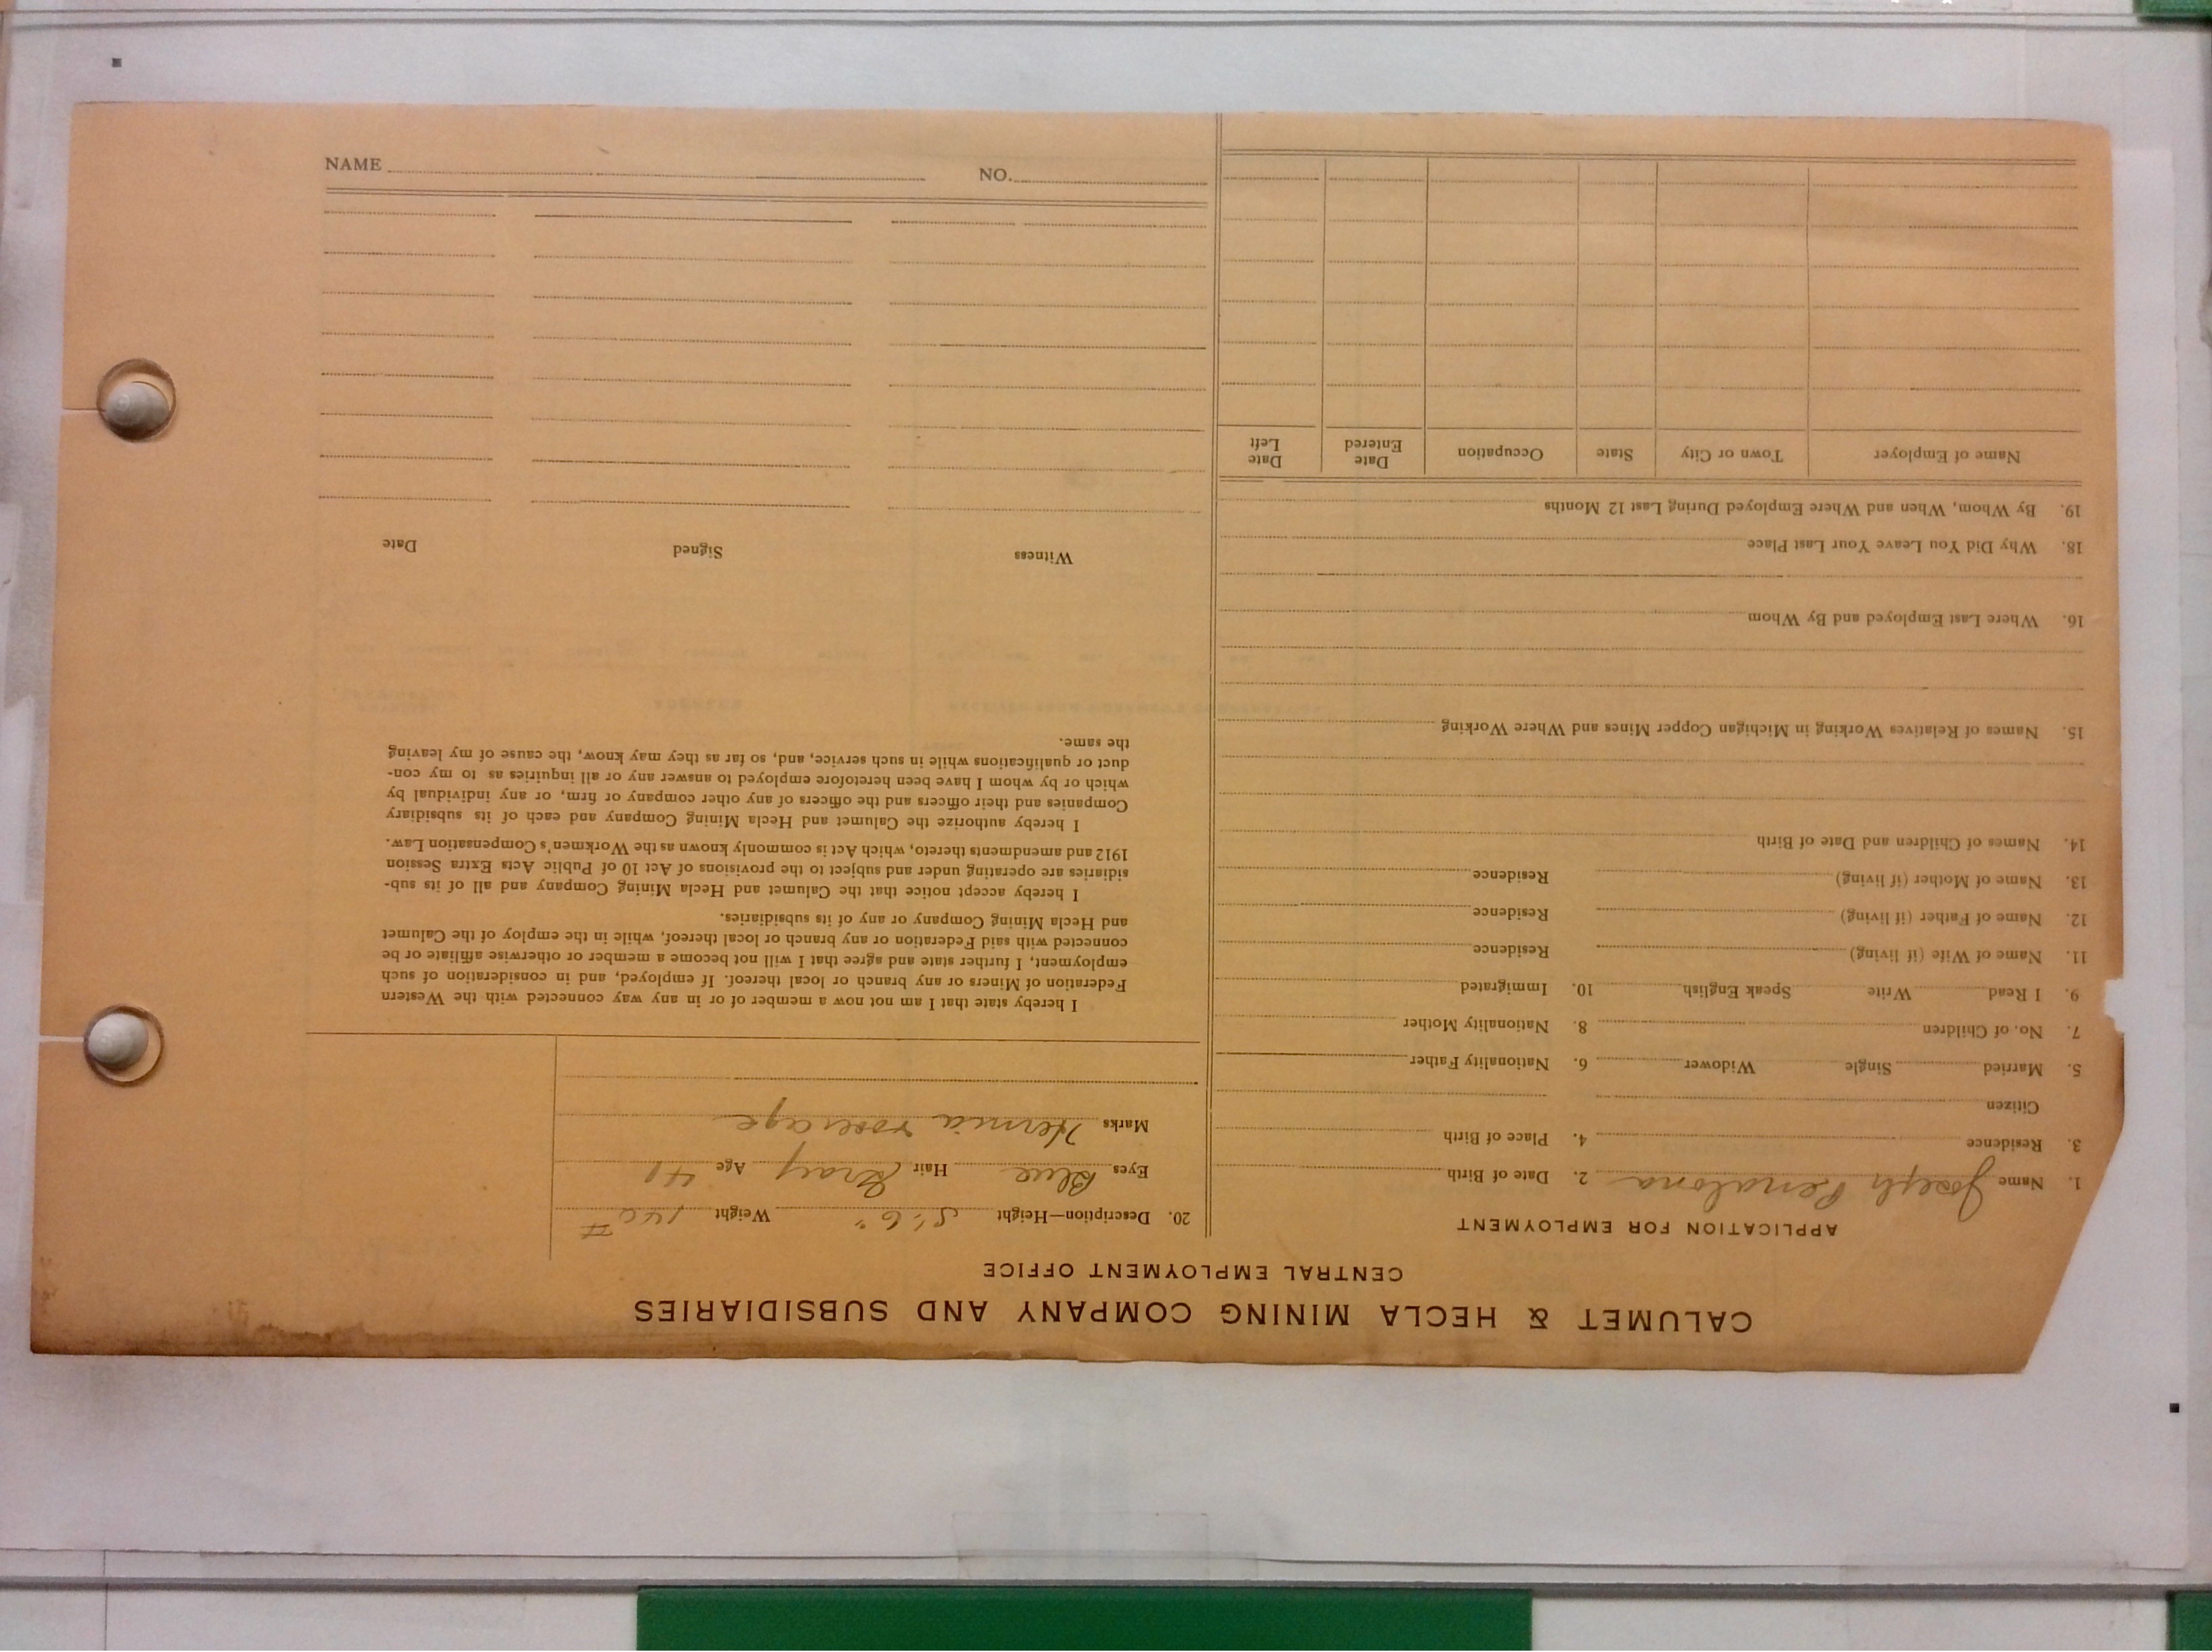 CALUMET & HECLA MINING COMPANY AND SUBSIDIARIES
CENTRAL EMPLOYMENT OFFICE
APPLICATION FOR EMPLOYMENT
1. Name Joseph Penalona 2. Date of Birth
3. Residence 4. Place of Birth
Citizen
5. Married Single Widower 6. Nationality Father
7. No. of Children 8. Nationality Mother
9. I Read Write Speak English 10. Immigrated
11. Name of Wife (if living) Residence
12. Name of Father (if living) Residence
13. Name of Mother (if living) Residence
14. Names of Children and Date of Birth
15. Names of Relatives Working in Michigan Copper Mines and Where Working
16. Where Last Employed and By Whom
18. Why Did You Leave Your Last Place
19. By Whom, When and Where Employed During Last 12 Months
Name of Employer Town or City State Occupation Date Entered Date Left
20. Description—Height 5' 6" Weight 140 #
Eyes Blue Hair Gray Age 41
Marks Hernia
I hereby state that I am not now a member of or in any way connected with the Western
Federation of Miners or any branch or local thereof. If employed, and in consideration of such
employment, I further state and agree that I will not become a member or otherwise affiliate or be
connected with said Federation or any branch or local thereof, while in the employ of the Calumet
and Hecla Mining Company or any of its subsidiaries.
I hereby accept notice that the Calumet and Hecla Mining Company and all of its sub-
sidiaries are operating under and subject to the provisions of Act 10 of Public Acts Extra Session
1912 and amendments thereto, which Act is commonly known as the Workmen's Compensation Law.
I hereby authorize the Calumet and Hecla Mining Company and each of its subsidiary
Companies and their officers and the officers of any other company or firm, or any individual by
which or by whom I have been heretofore employed to answer any or all inquiries as to my con-
duct or qualifications while in such service, and, so far as they may know, the cause of my leaving
the same.
Witness Signed Date
NAME NO.